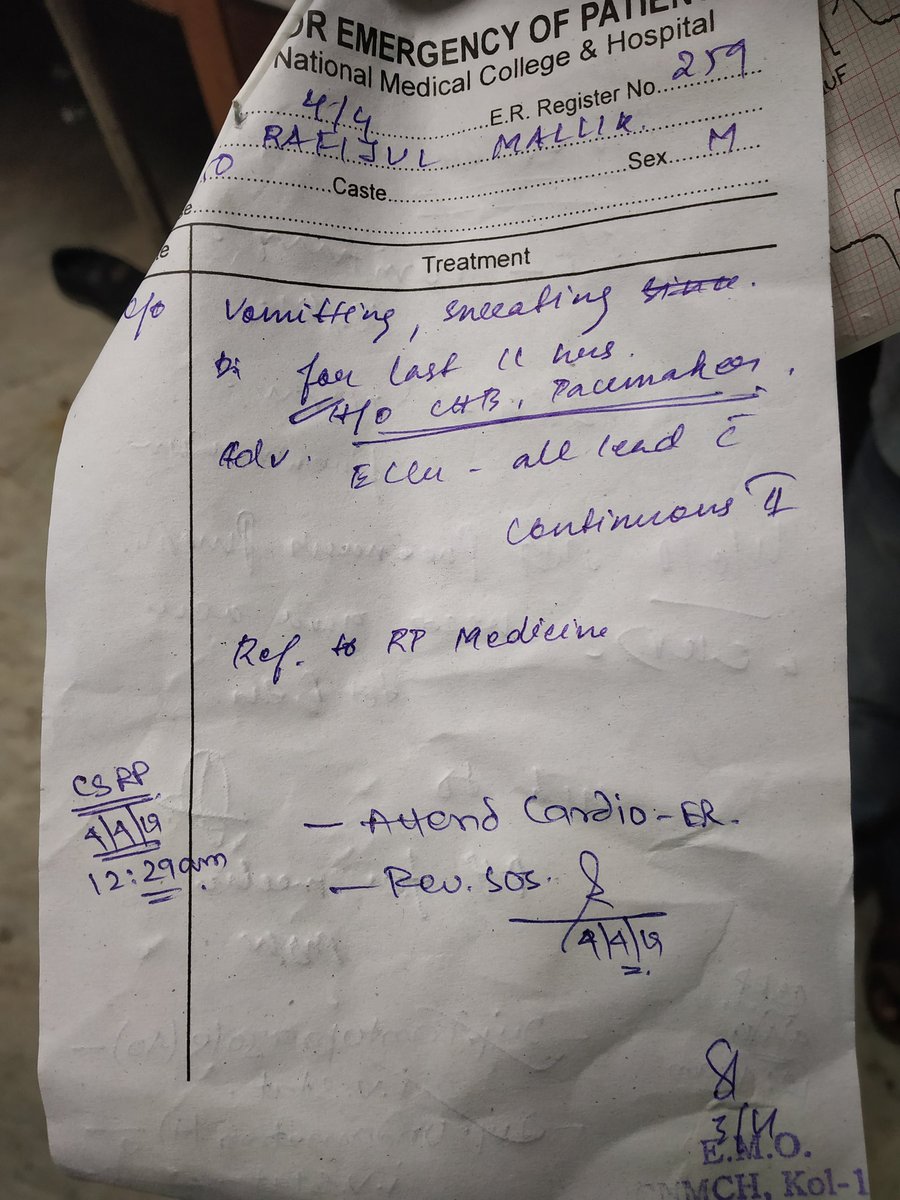 OR EMERGENCY OF PATIEN
National Medical College & Hospital
4/4 E.R. Register No. 259
RAFIJUL MALLIK
Caste Sex M
Treatment
c/o Vomitting, sweating since.
for last 11 hrs.
H/O CHB, Pacemaker.
Adv. ECG - all lead c̄
Continuous II
Ref. to RP Medicine
CSRP
4/4/19
12:29am
— Attend Cardio-ER.
— Rev. SOS.
4/4/19
3/4
E.M.O.
NMCH, Kol-1